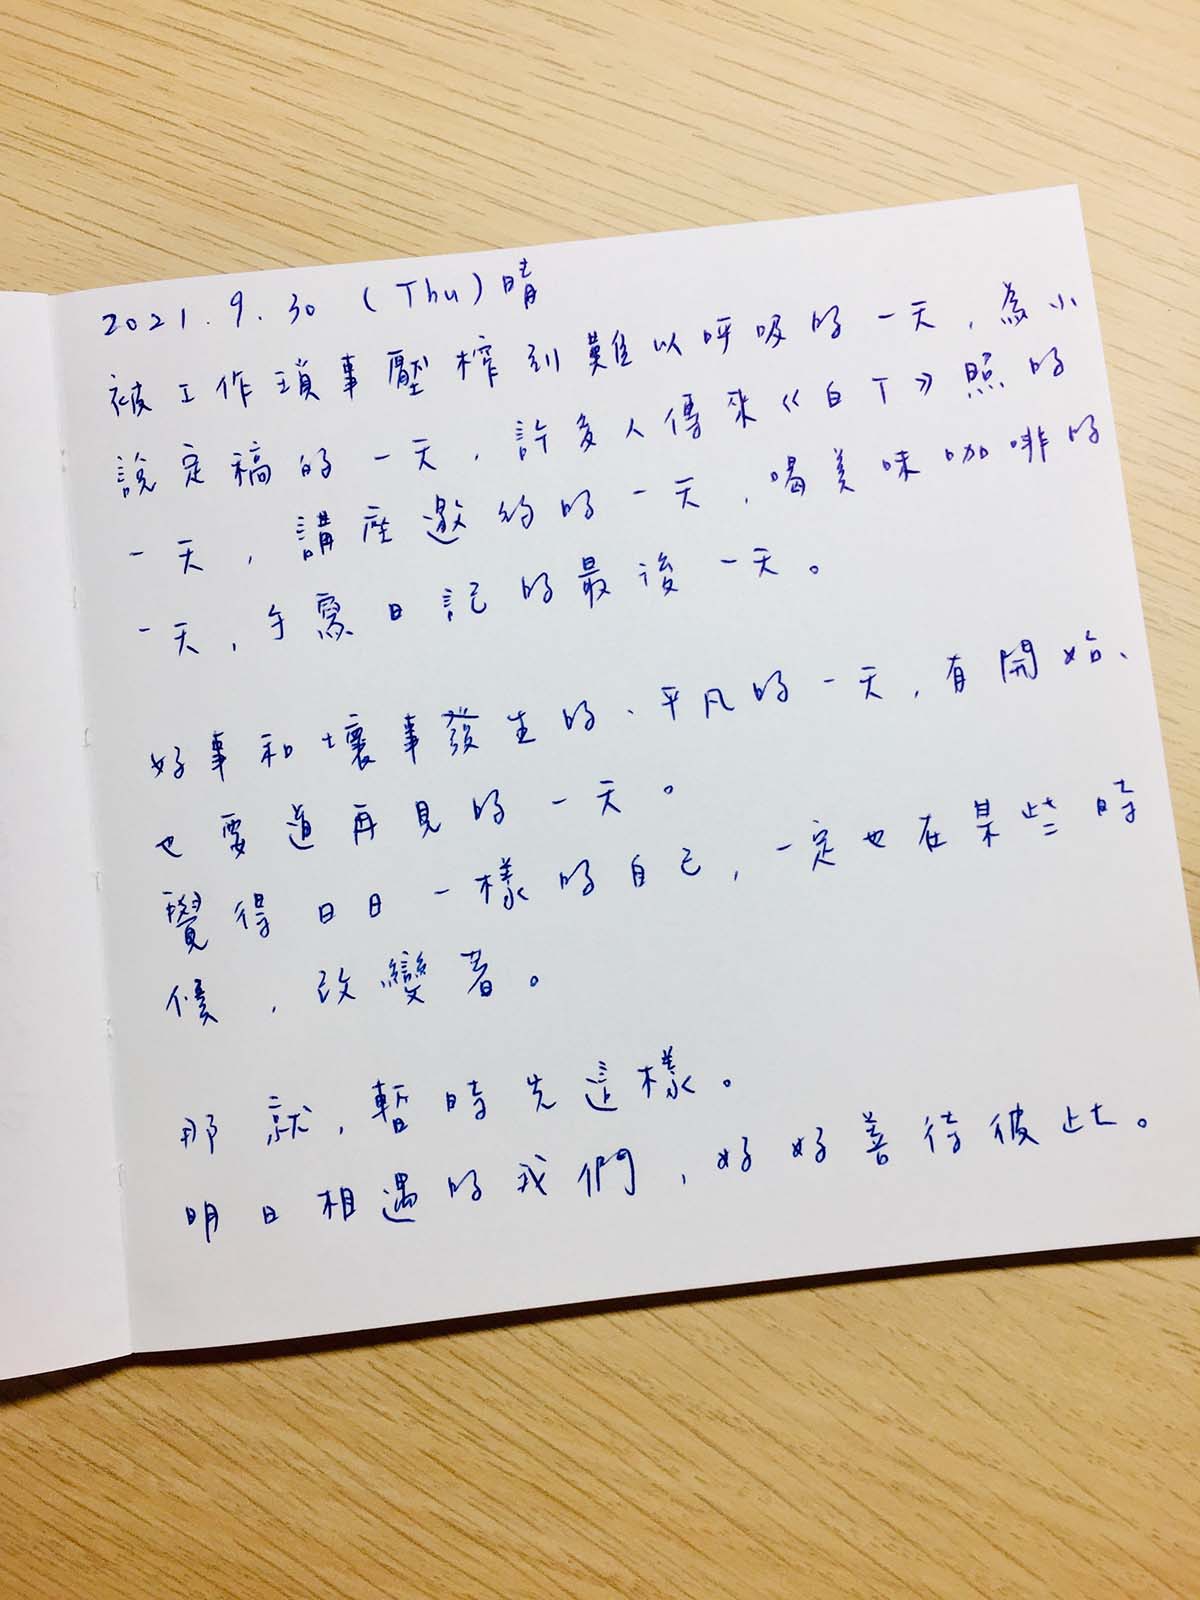 2021.9.30 (Thu) 晴
被工作瑣事壓榨到難以呼吸的一天，為小
說定稿的一天，許多人傳來《白T》照的
一天，講座邀約的一天，喝美味咖啡的
一天，手寫日記的最後一天。
好事和壞事發生的、平凡的一天，有開始、
也要道再見的一天。
覺得日日一樣的自己，一定也在某些時
候，改變著。
那就，暫時先這樣。
明日相遇的我們，好好善待彼此。